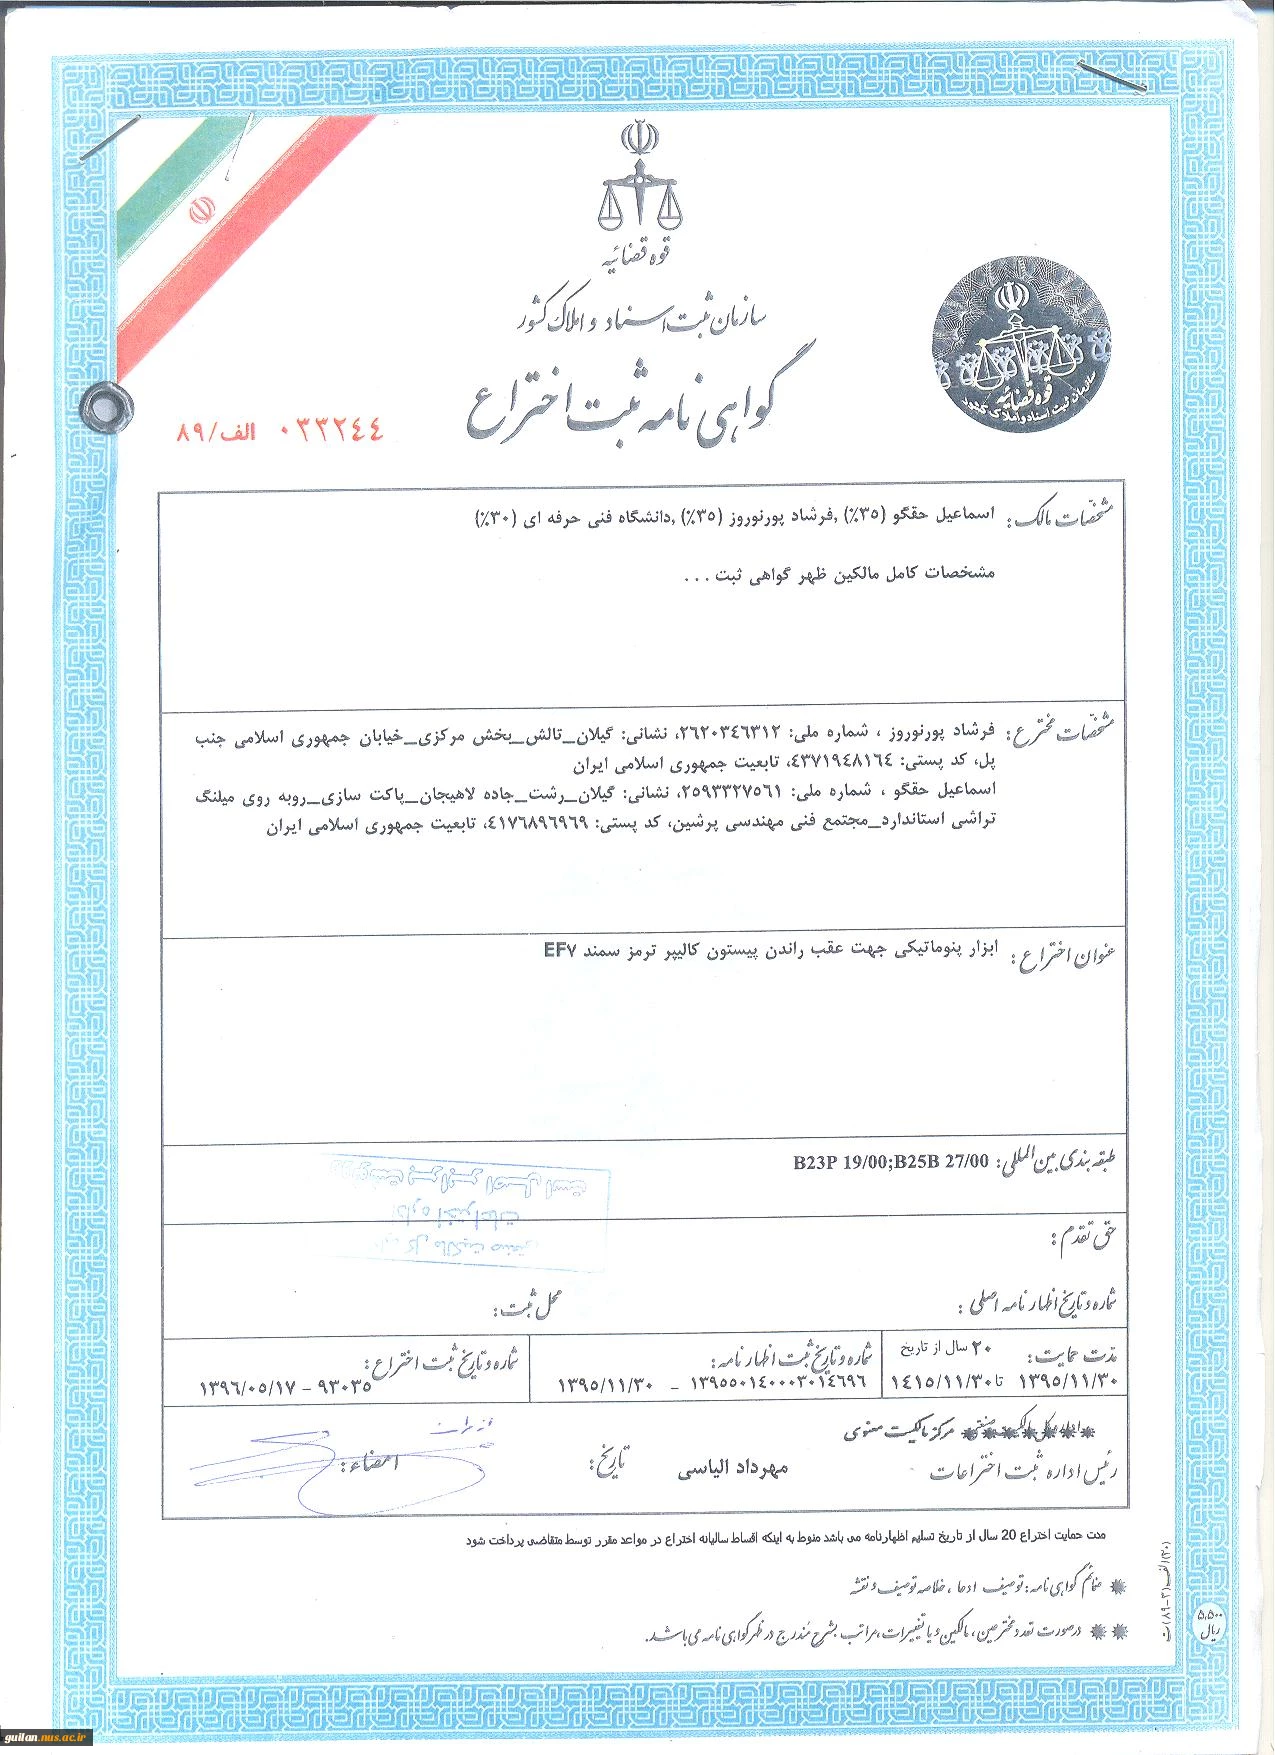 قوه قضائیه
سازمان ثبت اسناد و املاک کشور
گواهی نامه ثبت اختراع
قوه قضائیه
سازمان ثبت اسناد و املاک کشور
۰۳۳۲٤٤ الف/۸۹
مشخصات مالک: اسماعیل حقگو (۳۵٪) ,فرشاد پورنوروز (۳۵٪) ,دانشگاه فنی حرفه ای (۳۰٪)
مشخصات کامل مالکین ظهر گواهی ثبت ...
مشخصات مخترع: فرشاد پورنوروز ، شماره ملی: ۲٦۲۰۳٤٦۳۱۲، نشانی: گیلان_تالش_بخش مرکزی_خیابان جمهوری اسلامی جنب
پل، کد پستی: ٤۳۷۱۹٤۸۱٦٤، تابعیت جمهوری اسلامی ایران
اسماعیل حقگو ، شماره ملی: ۲۵۹۳۳۲۷۵٦۱، نشانی: گیلان_رشت_جاده لاهیجان_پاکت سازی_روبه روی میلنگ
تراشی استاندارد_مجتمع فنی مهندسی پرشین، کد پستی: ٤۱۷٦۸۹٦۹٦۹، تابعیت جمهوری اسلامی ایران
عنوان اختراع: ابزار پنوماتیکی جهت عقب راندن پیستون کالیپر ترمز سمند EF۷
طبقه بندی بین المللی: B23P 19/00;B25B 27/00
حق تقدم:
شماره و تاریخ اظهارنامه اصلی: محل ثبت:
مدت حمایت: ۲۰ سال از تاریخ
۱۳۹۵/۱۱/۳۰ تا ۱٤۱۵/۱۱/۳۰
شماره و تاریخ ثبت اظهارنامه:
۱۳۹۵۵۰۱٤۰۰۰۳۰۱٤٦۹٦ - ۱۳۹۵/۱۱/۳۰
شماره و تاریخ ثبت اختراع:
۹۳۰۳۵ - ۱۳۹٦/۰۵/۱۷
مرکز مالکیت معنوی
رئیس اداره ثبت اختراعات مهرداد الیاسی تاریخ: امضاء:
مدت حمایت اختراع 20 سال از تاریخ تسلیم اظهارنامه می باشد منوط به اینکه اقساط سالیانه اختراع در مواعد مقرر توسط متقاضی پرداخت شود
ضمائم گواهی نامه: توصیف ادعا ، خلاصه توصیف و نقشه
درصورت تعدد مخترعین، مالکین و یا تغییرات، مراتب بشرح مندرج در ظهر گواهی نامه می باشد.
۵,۵۰۰
ریال
guilan.nus.ac.ir